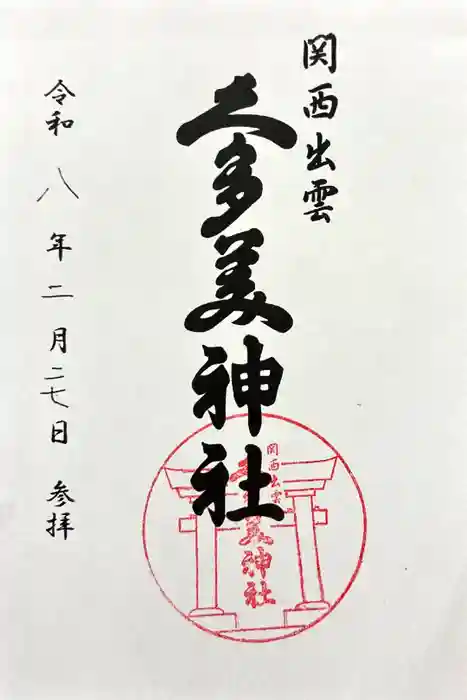 関西出雲
久多美神社
令和八年二月二七日 参拝
関西出雲
久多美神社